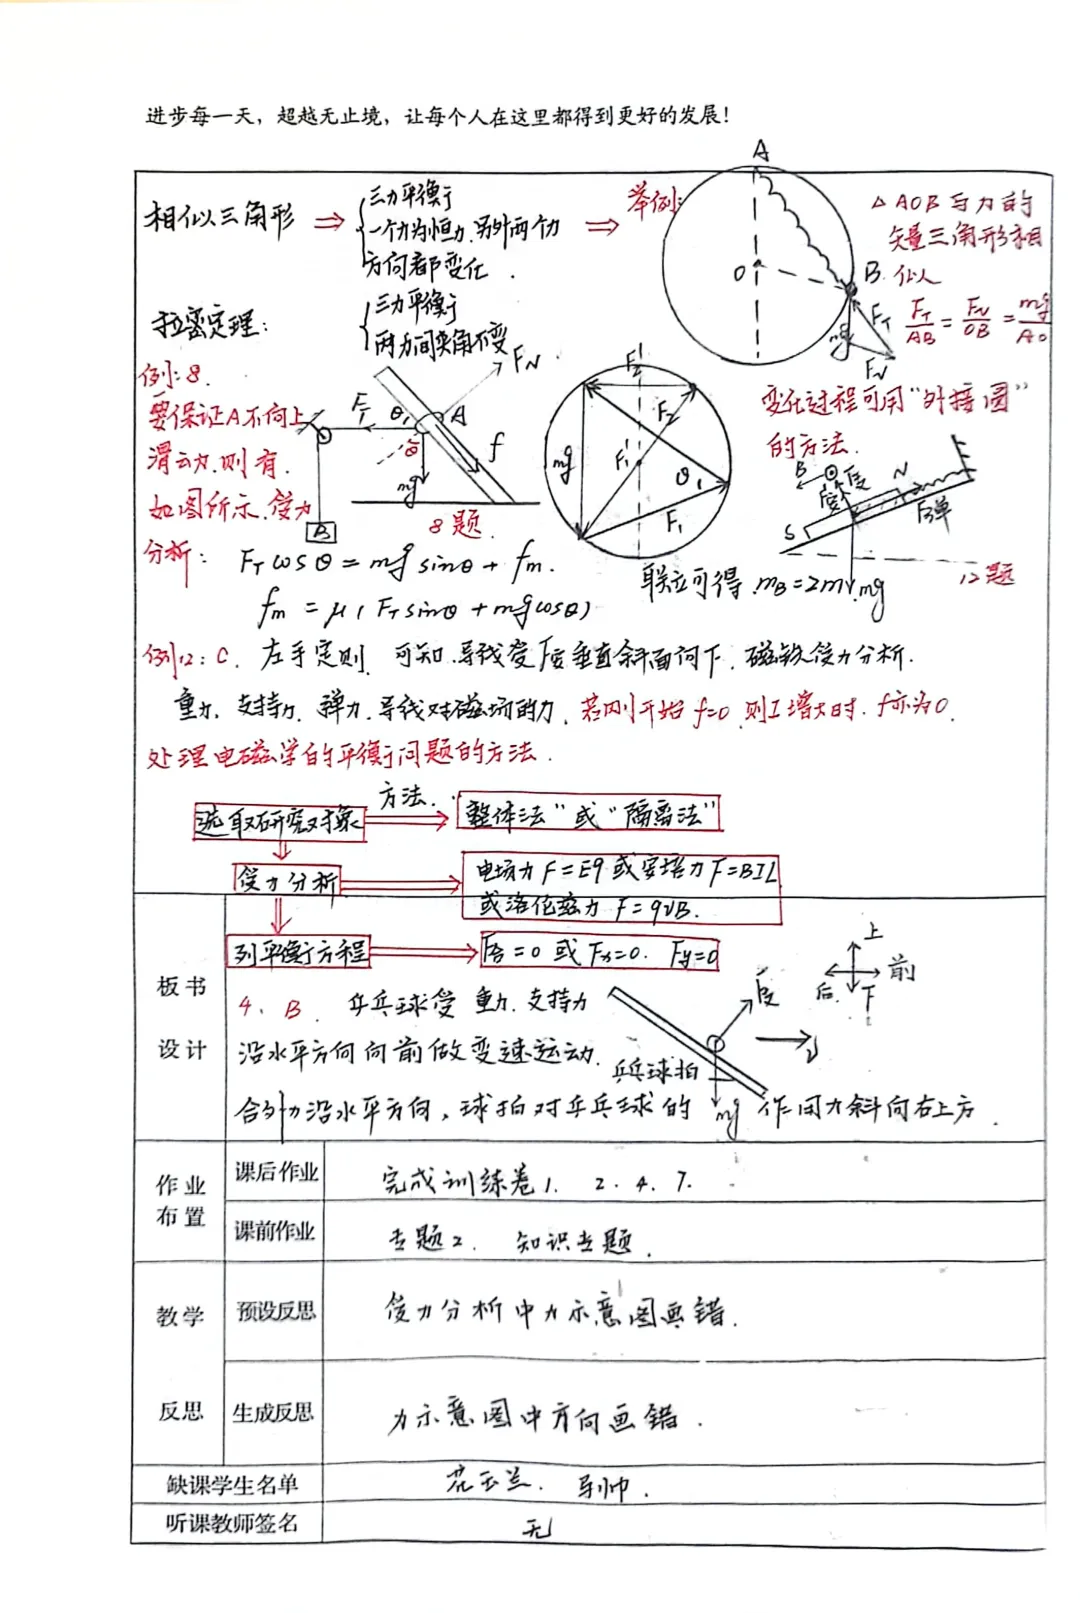 进步每一天，超越无止境，让每个人在这里都得到更好的发展！
相似三角形 ⇒ { 三力平衡
一个力为恒力,另外两个力
方向都变化.
⇒ 举例:
A
O
B
F_T
mg
F_N
△AOB与力的
矢量三角形相
似
F_T/AB = F_N/OB = mg/AO
拉密定理: { 三力平衡
两力间夹角不变
变化过程可用"外接圆"
的方法.
例:8.
要保证A不向上
滑动.则有.
如图所示.受力
分析:
F_T θ₁ A F_N
θ f
mg
B
8题.
F₂' F₂
mg F₁' θ₁
F₁
B F安 N
S F弹
mg
12题
F_T cosθ = mg sinθ + fm.
fm = μ(F_T sinθ + mg cosθ)
联立可得.mB=2m
例12: C. 左手定则.可知.导线受F安垂直斜面向下.磁铁受力分析.
重力.支持力.弹力.导线对磁场的力.若刚开始f=0.则I增大时.f亦为0.
处理电磁学的平衡问题的方法.
选取研究对象 方法. "整体法"或"隔离法"
受力分析 电场力F=Eq或安培力F=BIL
或洛伦兹力 F=qvB.
列平衡方程 F合=0 或 Fx=0. Fy=0
板书
设计
上
后. 前
下
4、B. 乒乓球受 重力.支持力
沿水平方向向前做变速运动.
乒乓球拍
mg
v
合外力沿水平方向,球拍对乒乓球的作用力斜向右上方.
作业
布置
课后作业 完成训练卷1. 2. 4. 7.
课前作业 专题2. 知识专题.
教学
反思
预设反思 受力分析中力示意图画错.
生成反思 力示意图中方向画错.
缺课学生名单
听课教师签名 无